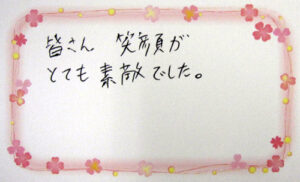 皆さん 笑顔が
とても素敵でした。